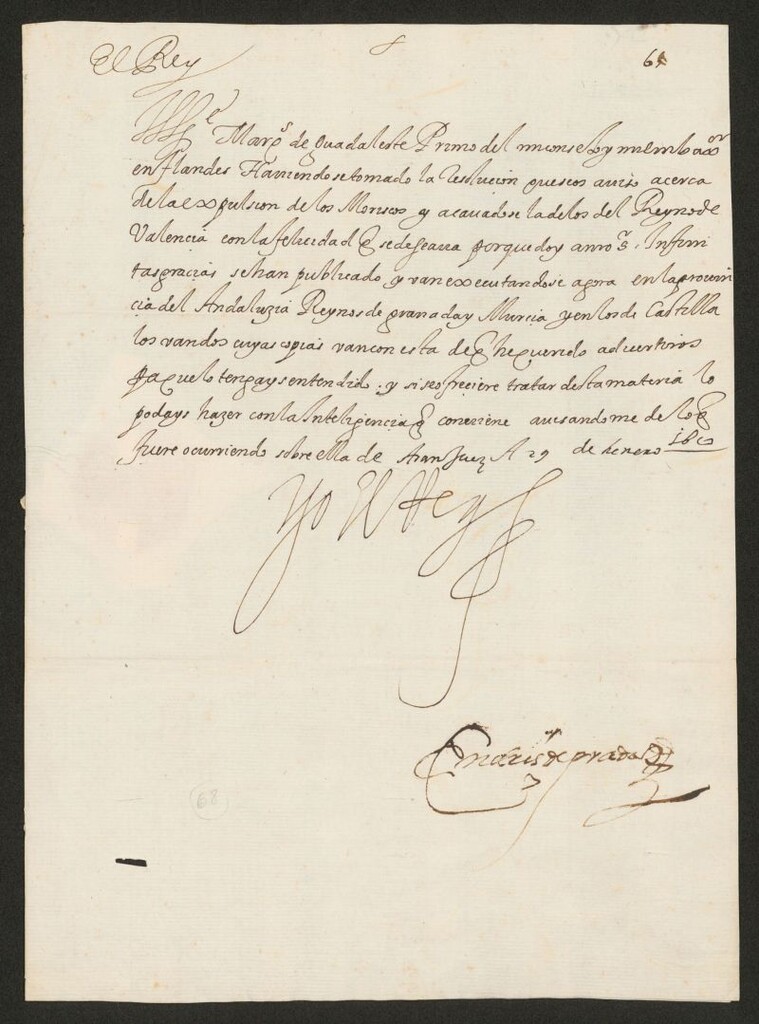 El Rey
64
Ill.e Marq.s de Guadaleste Primo del mi consejo y mi embax.or
en flandes Haviendose tomado la resolucion que seos aviso acerca
de la expulsion de los Moriscos y acavadose la de los del Reyno de
Valencia con la felicidad q se deseava porque doy a nro s.r Infini
tas gracias se han publicado y van executandose agora en la provin
cia del Andaluzia Reynos de granada y Murcia y en los de Castilla
los vandos cuyas copias van con esta de q he querido advertiros
para que lo tengays entendido. y si se ofreciere tratar desta materia lo
podays hazer con la Inteligencia q conviene avisandome de lo q
fuere ocurriendo sobre ella de Aranjuez A 29 de henero 1610
Yo El Rey
Andres de prada
68